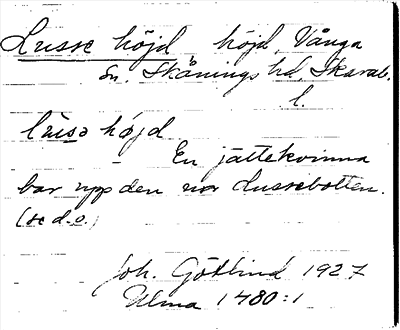 Lusse höjd höjd, Vånga
sn. Skånings hd, Skarab.
l.
lusə højd
En jättekvinna
bar upp den ur Lussebotten.
(se d.o.)
Joh. Götlind 1927
Ulma 1480:1